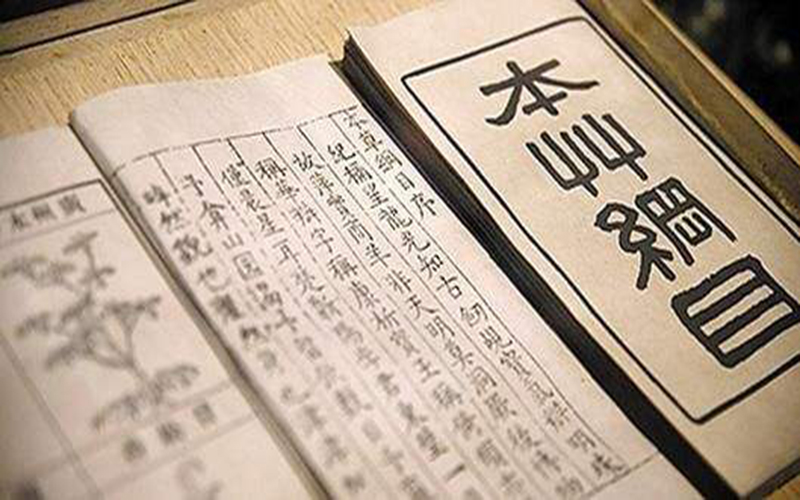 本艸綱目
本草綱目序
紀稱望龍光知古劍覘寶氣辨明珠
故萍實商羊非天明莫洞厥後博物
稱華辨字稱康析寶玉稱倚頓亦
僅晨星耳楚蘄陽李君東璧一
予弇山園謁予留飲數日予
睟然貌也癯然身也